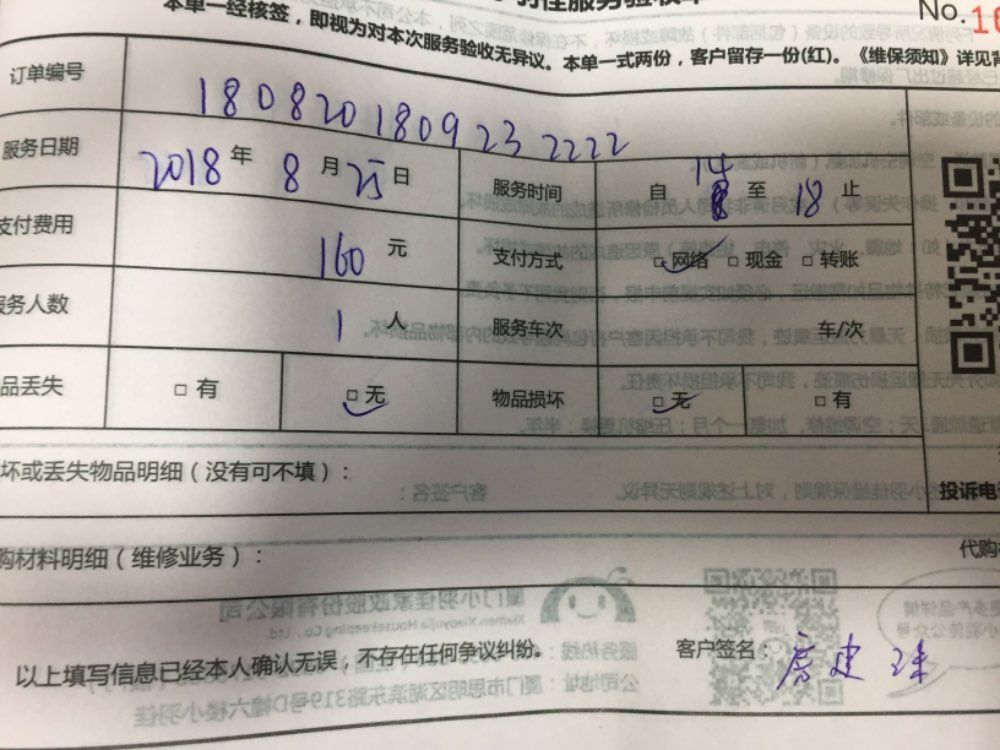 羽佳服务验收单
No.16
本单一经核签，即视为对本次服务验收无异议。本单一式两份，客户留存一份(红)。《维保须知》详见背
订单编号 180820180923 2222
服务日期 2018 年 8 月 25 日 服务时间 自 14 至 18 止
支付费用 160 元 支付方式 □网络 □现金 □转账
服务人数 1 人 服务车次 车/次
品丢失 □有 □无 物品损坏 □无 □有
坏或丢失物品明细（没有可不填）：
投诉电
购材料明细（维修业务）：
代购
以上填写信息已经本人确认无误，不存在任何争议纠纷。 客户签名：